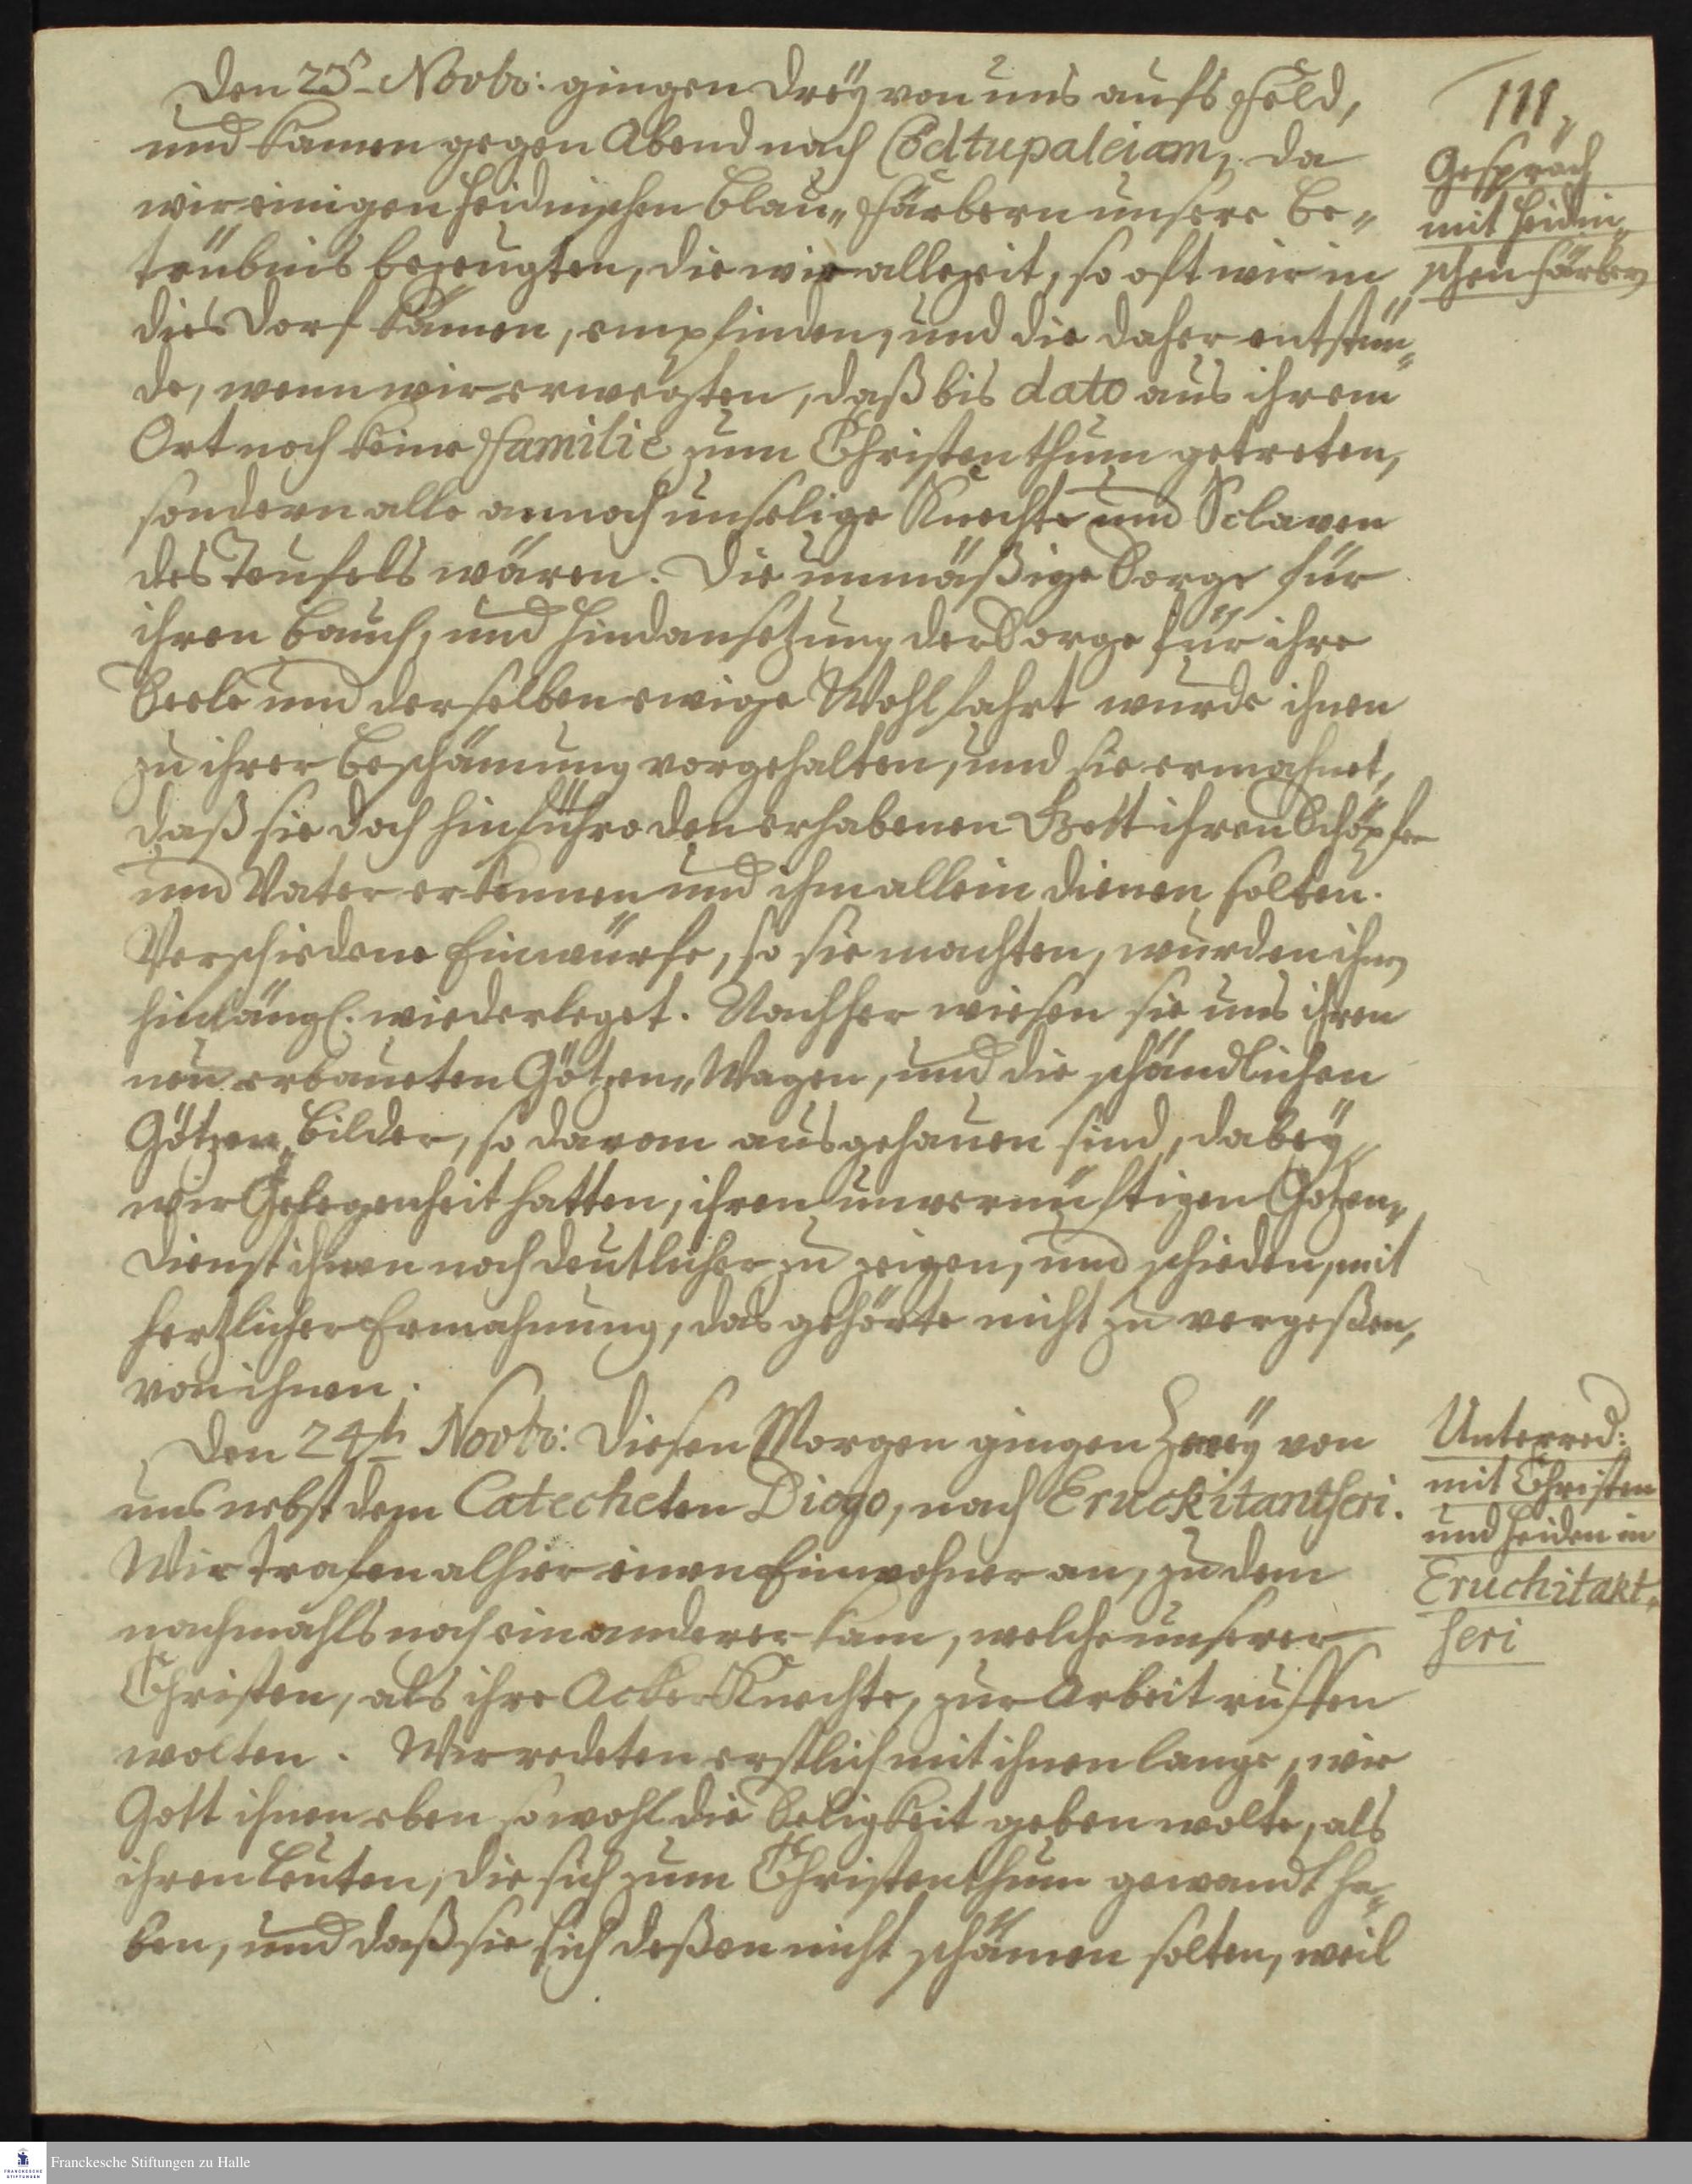 111,
Den 23ᵗ Novbr: gingen drëy von uns aufs Feld,
und kamen gegen Abend nach Codtupaleiam, da
wir einigen heidnischen Blau„ Färbern unsere Be„
trübnis bezeugten, die wir allezeit, so oft wir in
dies Dorf kämen, empfinden, und die daher entstün„
de, wenn wir erwegten, daß bis dato aus ihrem
Ort noch keine Familie zum Christenthum getreten,
sondern alle annoch unselige Knechte und Sclaven
des Teufels wären. Die unmäßige Sorge für
ihren Bauch, und Hindansetzung der Sorge für ihre
Seele und derselben ewige Wohlfahrt wurde ihnen
zu ihrer Beschämung vorgehalten, und sie ermahnet,
daß sie doch hinführo den erhabenen Gott ihren Schöpfer
und Vater erkennen und ihm allein dienen solten.
Verschiedene Einwürfe, so sie machten, wurden ihnen
hinlängl. wiederleget. Nachher wiesen sie uns ihren
neu erbaueten Götzen„Wagen, und die schändlichen
Götzen„Bilder, so daran ausgehauen sind, dabëy
wir Gelegenheit hatten, ihren unvernünftigen Götzen„
dienst ihnen noch deutlicher zu zeigen, und schieden, mit
hertzlicher Ermahnung, das gehörte nicht zu vergeßen,
von ihnen.
Gespräch
mit heidni„
schen Färbern
Den 24th Novbr: Diesen Morgen gingen Zwëy von
uns nebst dem Catecheten Diogo, nach Eruckitantseri.
Wir trafen alhier einen Einwohner an, zu dem
nachmahls noch ein anderer kam, welche unserer
Christen, als ihre Acker Knechte, zur Arbeit ruffen
wolten. Wir redeten erstlich mit ihnen lange, wie
Gott ihnen eben sowohl die Seligkeit geben wolte, als
ihren Leuten, die sich zum Christenthum gewandt ha„
ben, und daß sie sich deßen nicht schämen solten, weil
Unterred:
mit Christen
und Heiden in
Eruchitakt„
seri
Franckesche Stiftungen zu Halle